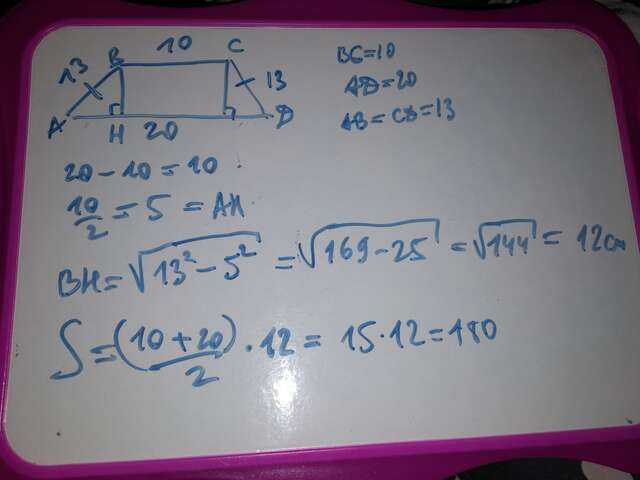 10
B C
13 13
A H 20 D
BC=10
AD=20
AB=CD=13
20-10=10
10/2=5=AH
BH=√13²-5²=√169-25=√144=12cm
S=(10+20)/2·12=15·12=180